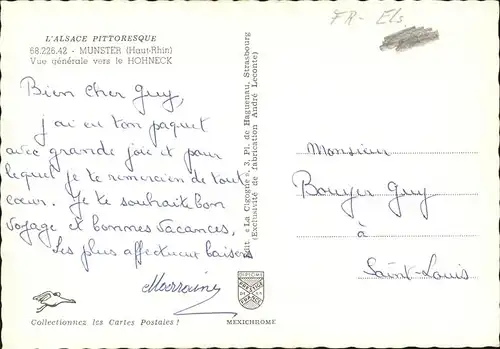 FR - Els.
L'ALSACE PITTORESQUE
68.226.42 - MUNSTER (Haut-Rhin)
Vue générale vers le HOHNECK
Bien cher Guy,
j'ai eu ton paquet
avec grande joie et pour
lequel je te remercien de tout
cœur. Je te souhaite bon
voyage et bonnes vacances,
Les plus affectueux baisers
Marraine
Collectionnez les Cartes Postales !
Edit. « La Cigogne », 3, Pl. de Haguenau, Strasbourg
(Exclusivité de fabrication André Leconte)
DIPLOME
PRESTIGE
DE LA
FRANCE
MEXICHROME
Monsieur
Bouyer Guy
à
Saint-Louis